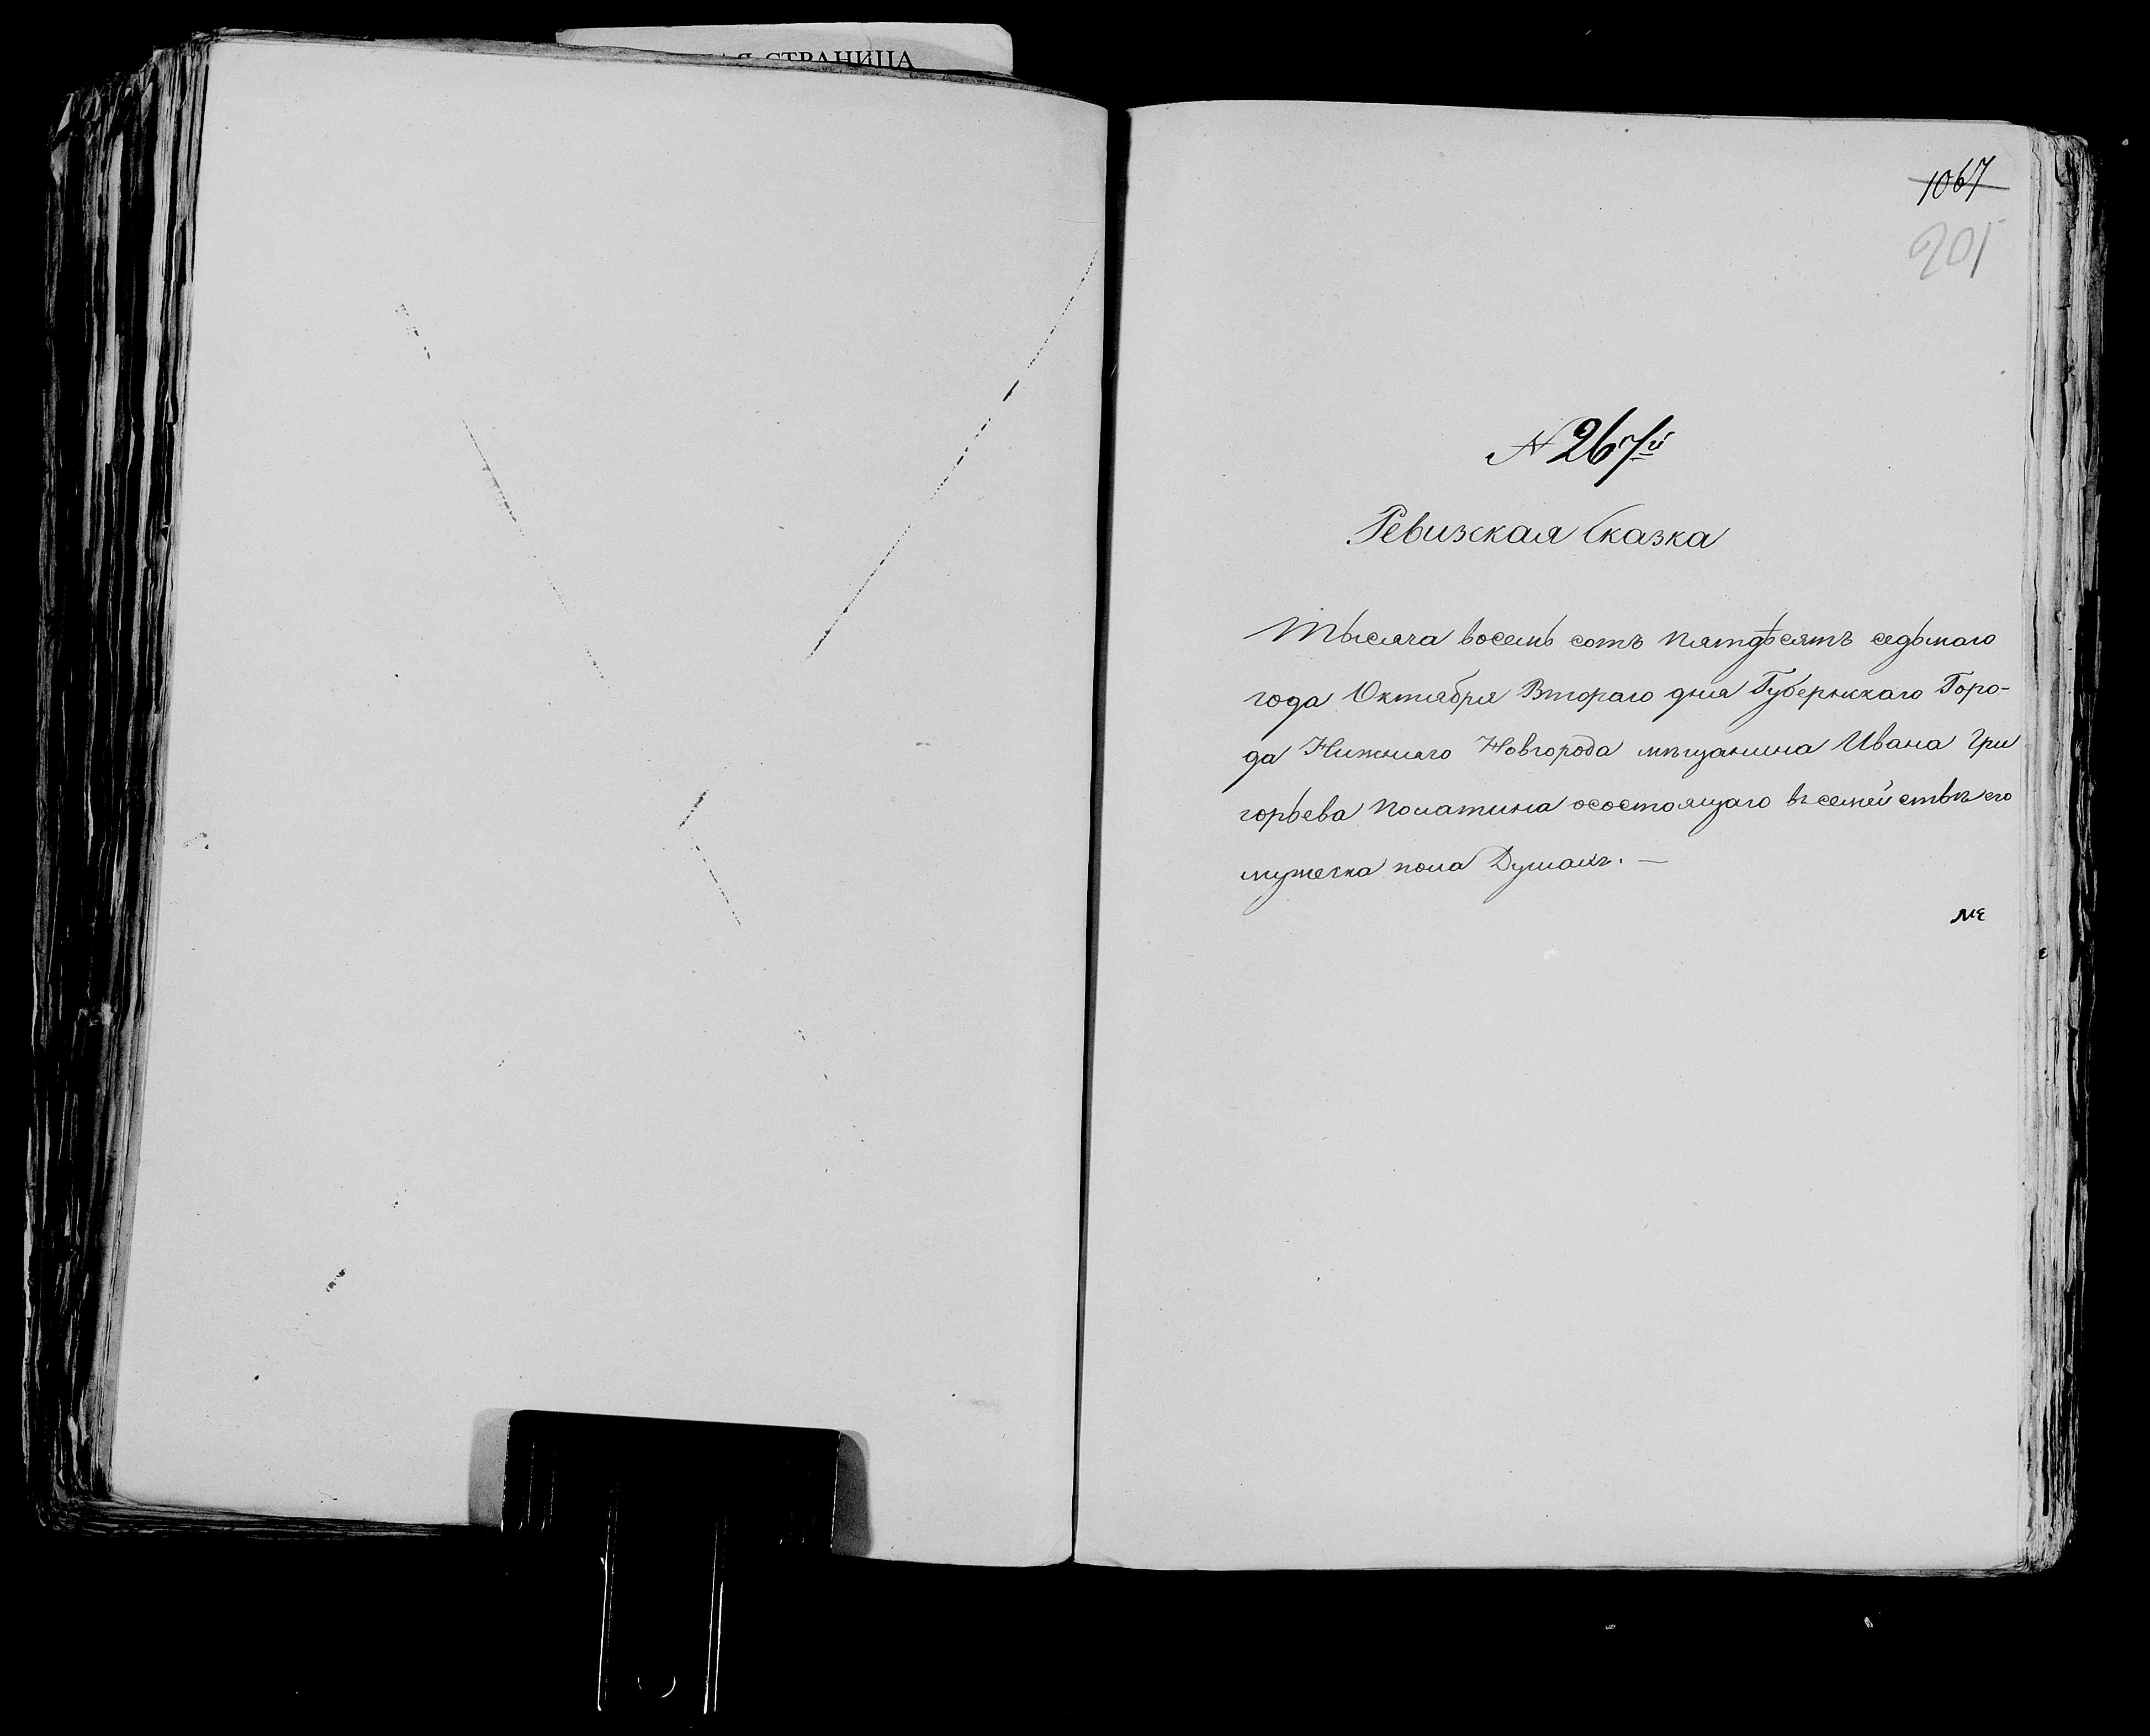 СТРАНИЦА
1067
201
№ 267й
Ревизская Сказка
Тысяча восемь сотъ пятдѣсятъ седьмаго
года Октября Втораго дня Губернскаго Горо-
да Нижняго Новгорода мѣщанина Ивана Гри
горьева Полатина осостоящаго въ семействѣ его
мужеска пола Душахъ. —